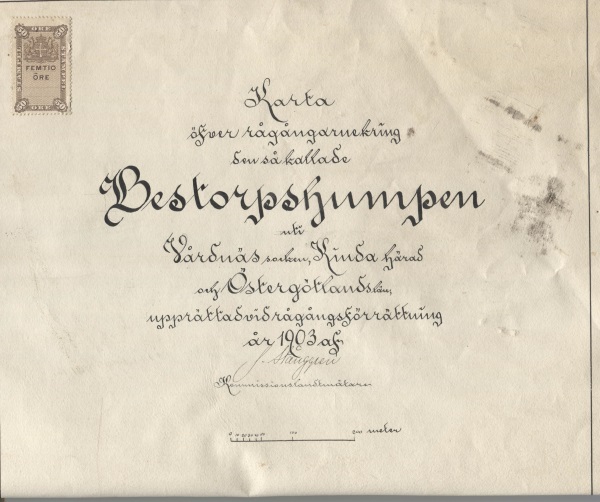 50 ÖRE 50
STÄMPEL
FEMTIO
ÖRE
50 ÖRE 50
Karta
öfver rågångarne kring
den så kallade
Bestorpshumpen
uti
Vårdnäs socken, Kinda härad
och Östergötlands län,
upprättad vid rågångsförrättning
år 1903 af
Kommissionslandtmätare
meter